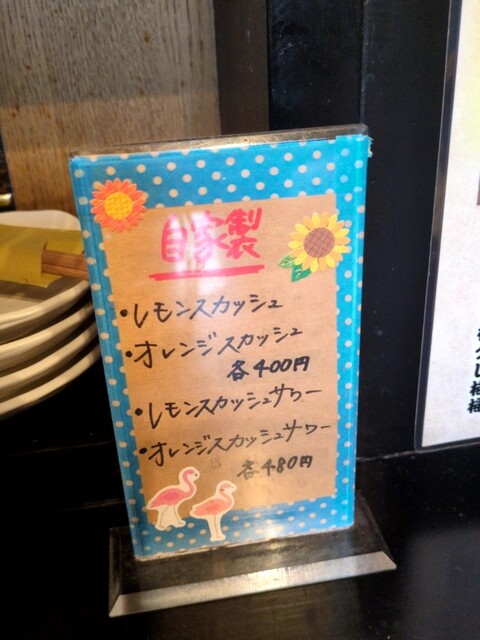 自家製
・レモンスカッシュ
・オレンジスカッシュ
各400円
・レモンスカッシュサワー
・オレンジスカッシュサワー
各480円